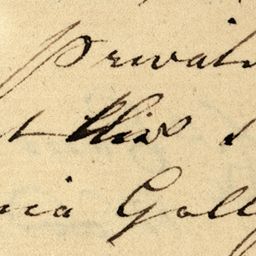 privat
t this
nia Gall